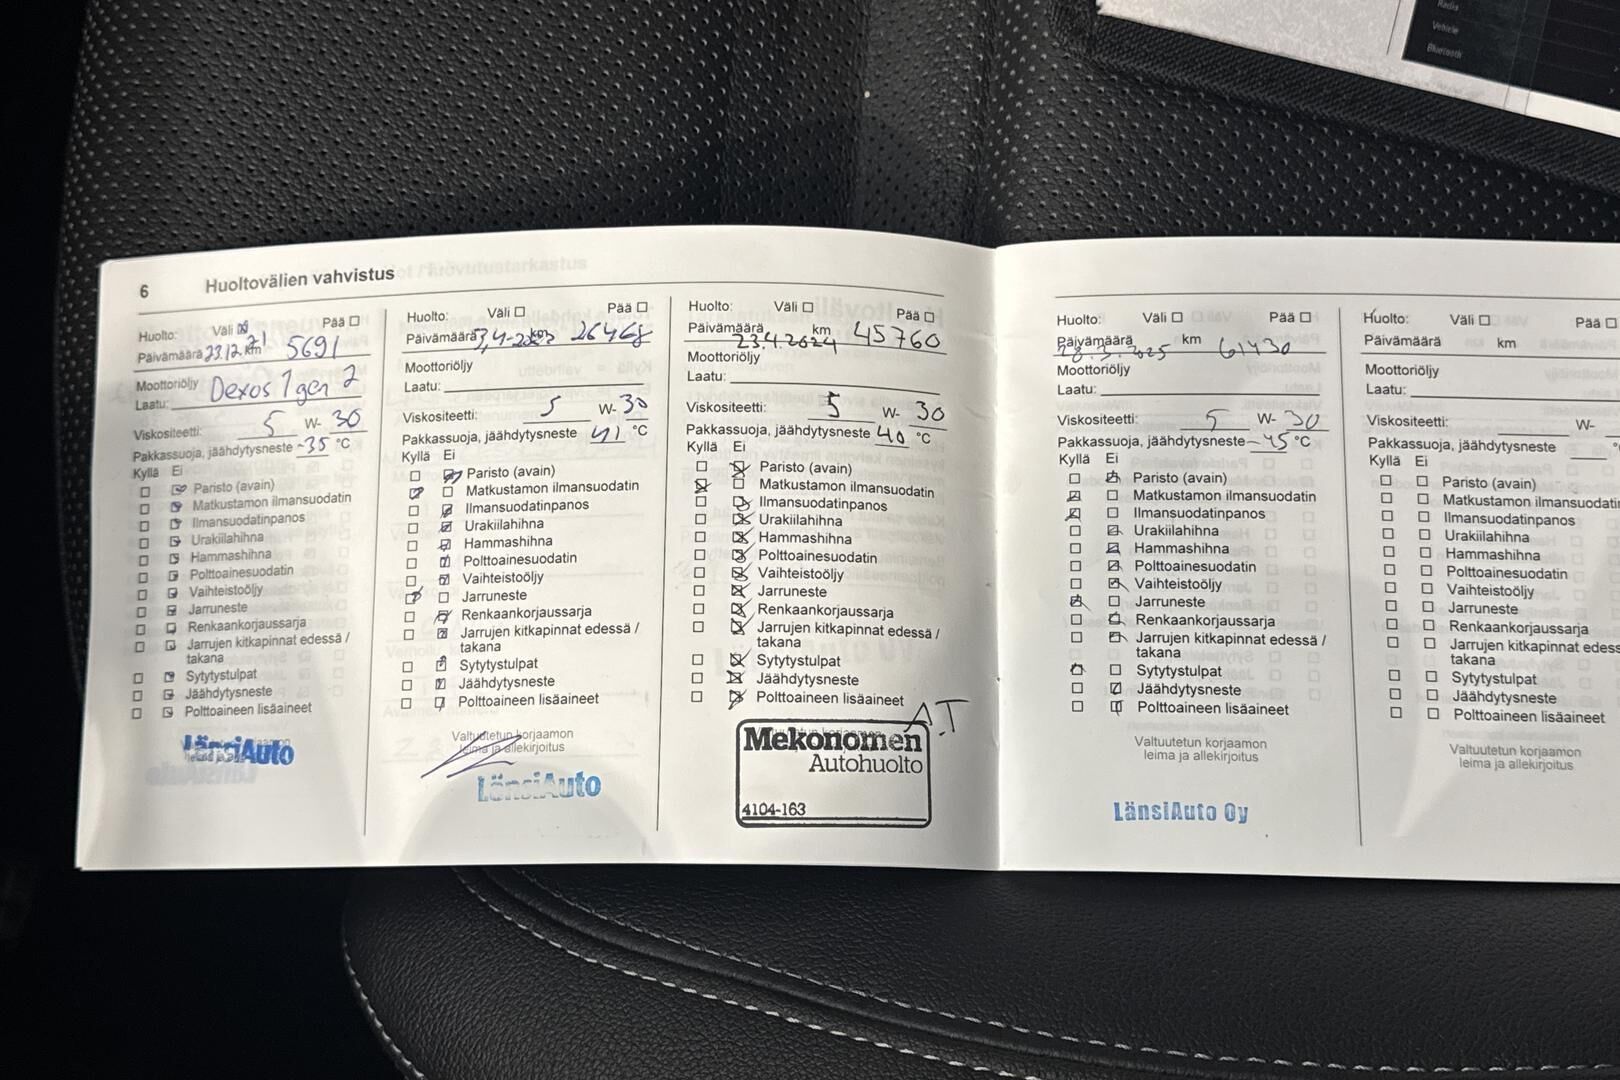 Radio
Vehicle
Bluetooth
6 Huoltovälien vahvistus
Huolto: Väli Pää
Päivämäärä 23.12.21 km 5691
Moottoriöljy
Laatu: Dexos 1 gen 2
Viskositeetti: 5 W- 30
Pakkassuoja, jäähdytysneste -35 °C
Kyllä Ei
Paristo (avain)
Matkustamon ilmansuodatin
Ilmansuodatinpanos
Urakiilahihna
Hammashihna
Polttoainesuodatin
Vaihteistoöljy
Jarruneste
Renkaankorjaussarja
Jarrujen kitkapinnat edessä /
takana
Sytytystulpat
Jäähdytysneste
Polttoaineen lisäaineet
LänsiAuto
Huolto: Väli Pää
Päivämäärä km 26468
Moottoriöljy
Laatu:
Viskositeetti: 5 W- 30
Pakkassuoja, jäähdytysneste 41 °C
Kyllä Ei
Paristo (avain)
Matkustamon ilmansuodatin
Ilmansuodatinpanos
Urakiilahihna
Hammashihna
Polttoainesuodatin
Vaihteistoöljy
Jarruneste
Renkaankorjaussarja
Jarrujen kitkapinnat edessä /
takana
Sytytystulpat
Jäähdytysneste
Polttoaineen lisäaineet
Valtuutetun korjaamon
leima ja allekirjoitus
LänsiAuto
Huolto: Väli Pää
Päivämäärä 23.4.2024 km 45760
Moottoriöljy
Laatu:
Viskositeetti: 5 W- 30
Pakkassuoja, jäähdytysneste 40 °C
Kyllä Ei
Paristo (avain)
Matkustamon ilmansuodatin
Ilmansuodatinpanos
Urakiilahihna
Hammashihna
Polttoainesuodatin
Vaihteistoöljy
Jarruneste
Renkaankorjaussarja
Jarrujen kitkapinnat edessä /
takana
Sytytystulpat
Jäähdytysneste
Polttoaineen lisäaineet
A.T
Mekonomen
Autohuolto
4104-163
Huolto: Väli Pää
Päivämäärä 28.3.2025 km 61430
Moottoriöljy
Laatu:
Viskositeetti: 5 W- 30
Pakkassuoja, jäähdytysneste -45 °C
Kyllä Ei
Paristo (avain)
Matkustamon ilmansuodatin
Ilmansuodatinpanos
Urakiilahihna
Hammashihna
Polttoainesuodatin
Vaihteistoöljy
Jarruneste
Renkaankorjaussarja
Jarrujen kitkapinnat edessä /
takana
Sytytystulpat
Jäähdytysneste
Polttoaineen lisäaineet
Valtuutetun korjaamon
leima ja allekirjoitus
LänsiAuto Oy
Huolto: Väli Pää
Päivämäärä km
Moottoriöljy
Laatu:
Viskositeetti: W-
Pakkassuoja, jäähdytysneste
Kyllä Ei
Paristo (avain)
Matkustamon ilmansuodatin
Ilmansuodatinpanos
Urakiilahihna
Hammashihna
Polttoainesuodatin
Vaihteistoöljy
Jarruneste
Renkaankorjaussarja
Jarrujen kitkapinnat edess
takana
Sytytystulpat
Jäähdytysneste
Polttoaineen lisäaineet
Valtuutetun korjaamon
leima ja allekirjoitus